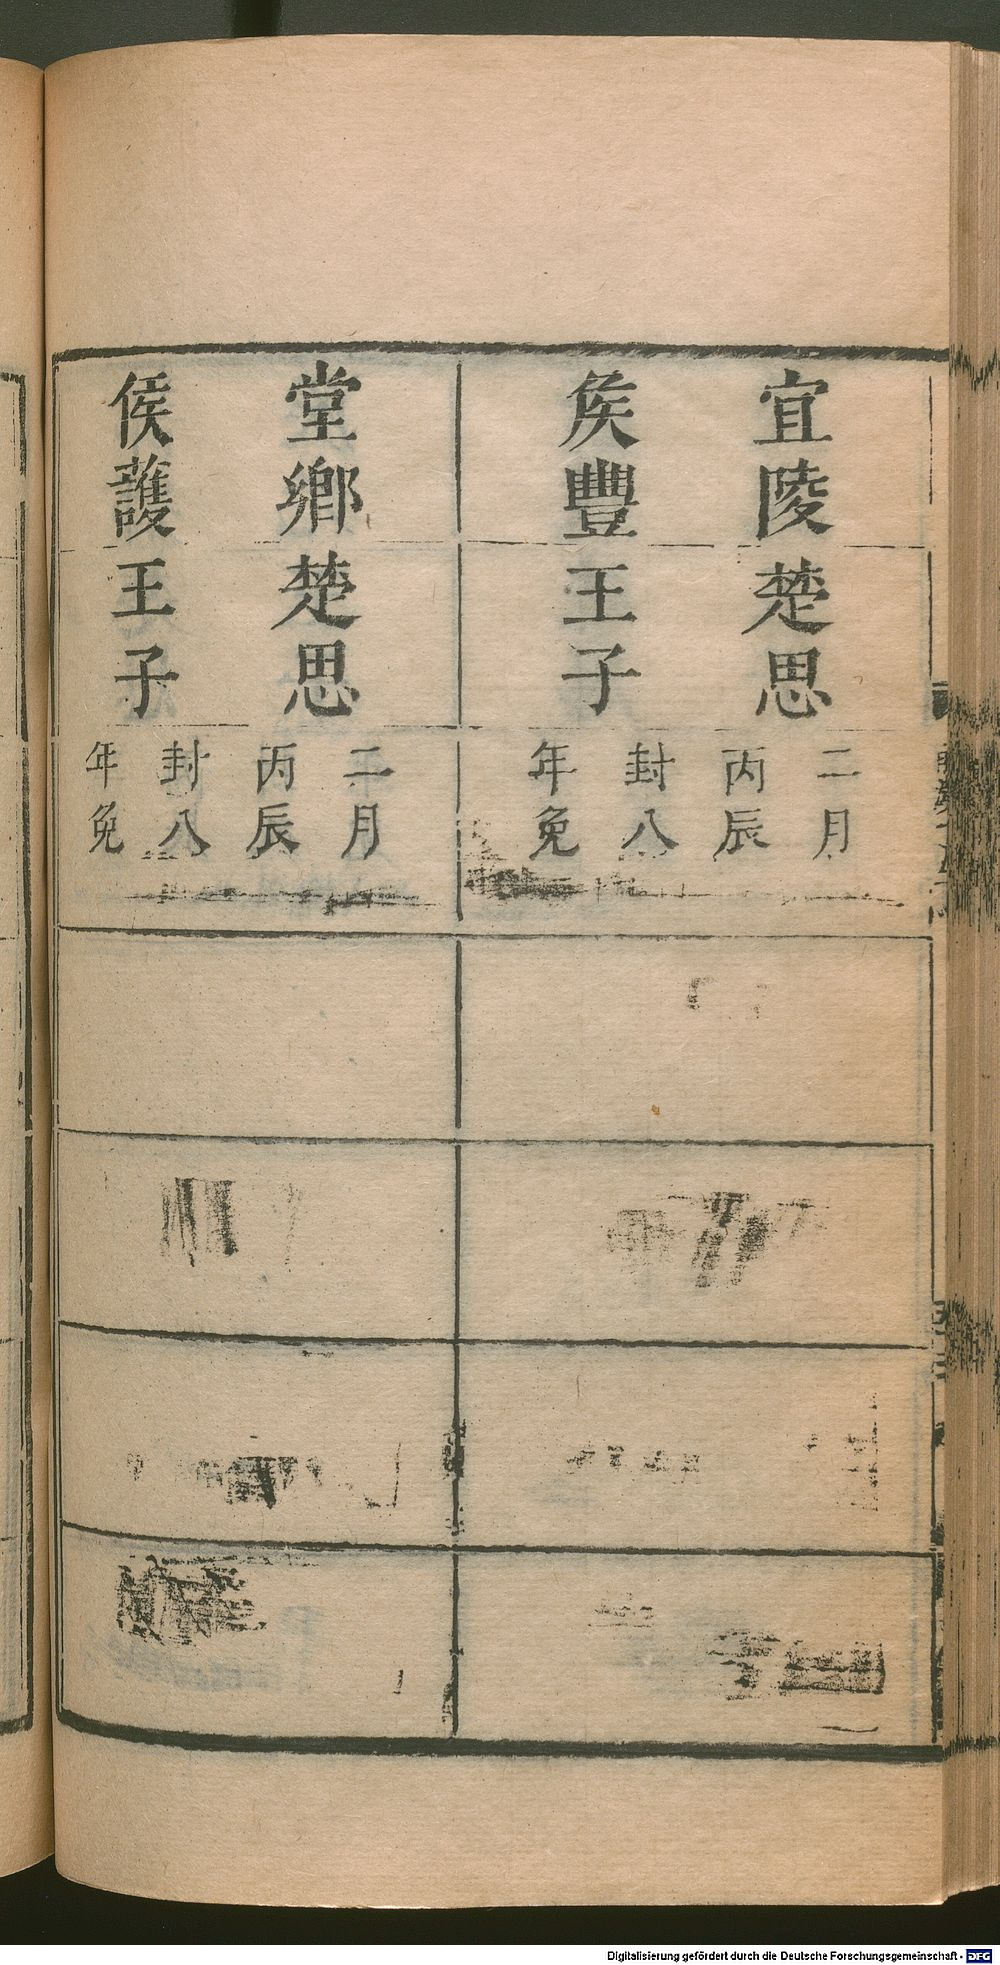 宜陵
矦豐
楚思
王子
二月
丙辰
封八
年免
堂鄉
侯護
楚思
王子
二月
丙辰
封八
年免
Digitalisierung gefördert durch die Deutsche Forschungsgemeinschaft - DFG